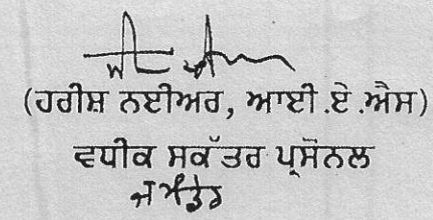 (ਹਰੀਸ਼ ਨਈਅਰ, ਆਈ.ਏ.ਐਸ)
ਵਧੀਕ ਸਕੱਤਰ ਪ੍ਰਸੋਨਲ